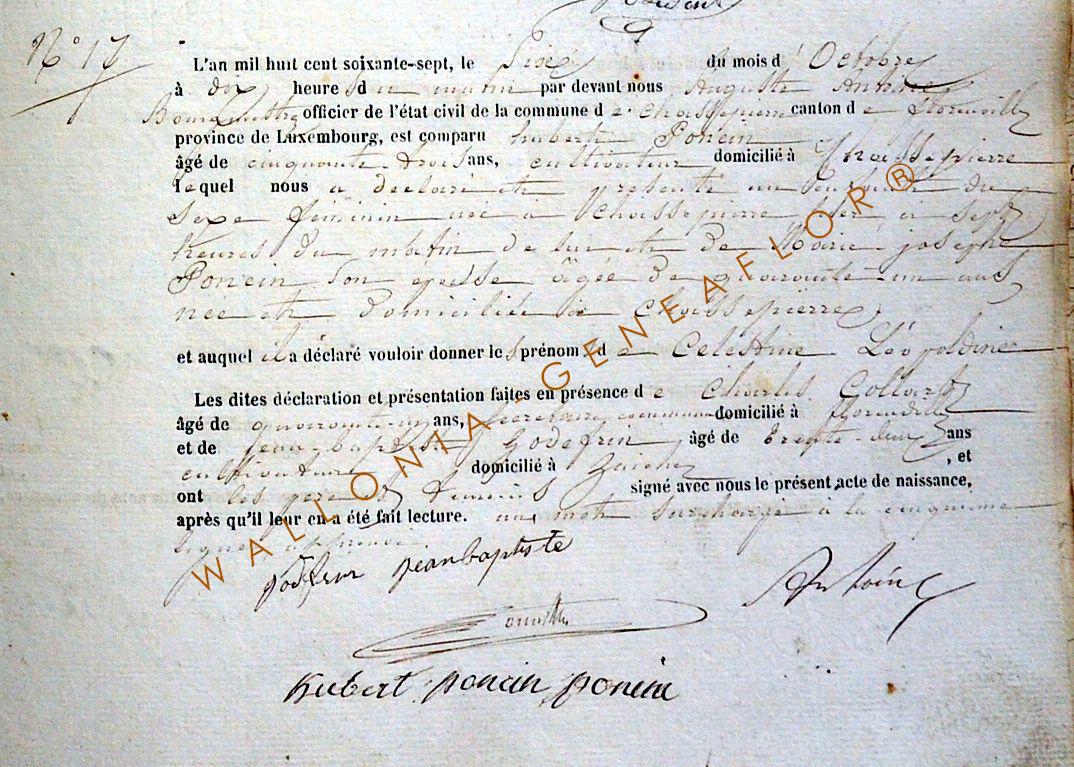 N° 17
L'an mil huit cent soixante-sept, le six du mois d'Octobre
à dix heures du matin par devant nous Auguste Antoine
Bourgmestre officier de l'état civil de la commune de Chassepierre canton de Florenville
province de Luxembourg, est comparu hubert Poncin
âgé de cinquante trois ans, cultivateur domicilié à Chassepierre
lequel nous a déclaré et présenté un enfant du
sexe féminin née à Chassepierre hier à sept
heures du matin de lui et de Marie joseph
Poncin son épouse âgée de quarante un ans
née et domiciliée à Chassepierre
et auquel il a déclaré vouloir donner les prénoms de Celestine Léopoldine
Les dites déclaration et présentation faites en présence de Charles Collart
âgé de quarante-un ans, secrétaire communal domicilié à florenville
et de jean-baptiste Godefrin âgé de trente-deux ans
cultivateur domicilié à , et
ont les père et temoins signé avec nous le présent acte de naissance,
après qu'il leur en a été fait lecture. un mot surchargé à la cinquième
ligne approuvé
godfrin jeanbaptiste
Antoine
hubert poncin poncin
WALLONIA GENEAFLOR ®